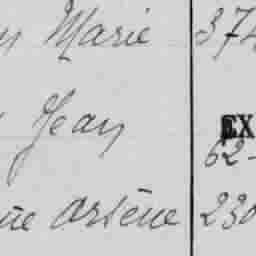 Marie 374
Jean EX
62-
ne Arsène 230